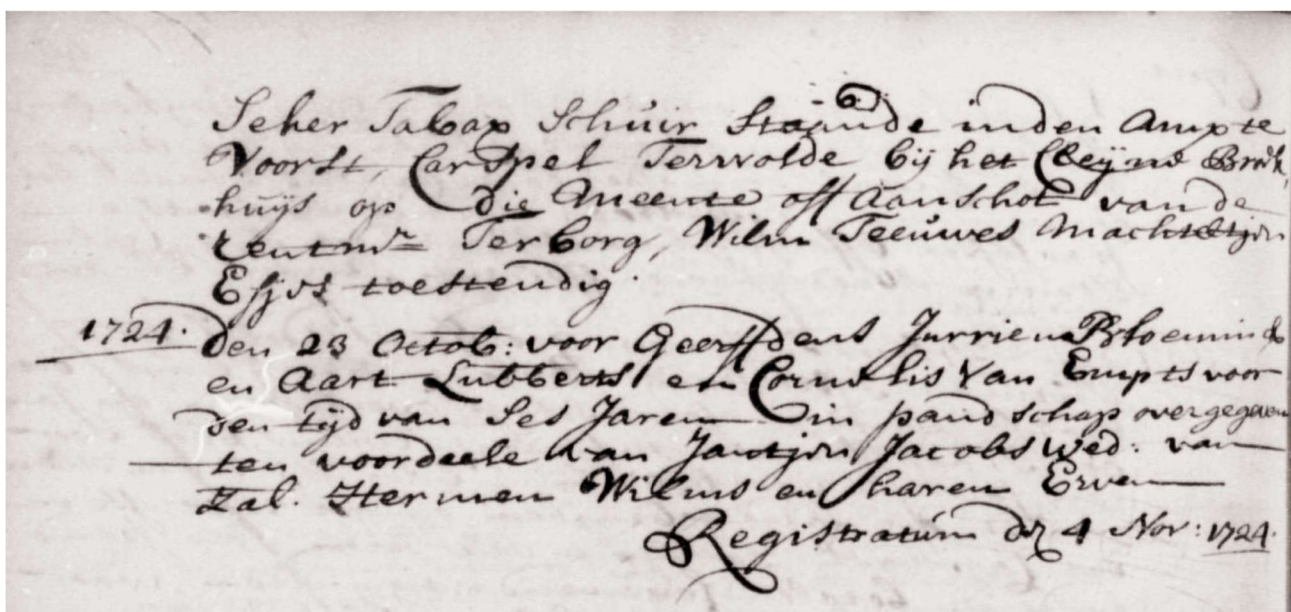 6.
Seker Tabax Schuir Staande inden Ampte
Voorst, Carspel Terwolde bij het Cleijne Broek,
huijs op die Meente off Aanschot van de
rentmr Terborg, Wilm Teeuwes Machteltjen
Essjes toestendig.
1724. den 23 Octob: voor Geerffdens Jurrien Bloemink
en Aart Lubberts en Cornelis Van Empts voor
den tijd van Ses Jaren in pandschap overgegaen
ten voordeele van Jantjen Jacobs Wed: van
Zal. Hermen Wilms en haren Erven
Registratum den 4 Nov: 1724.